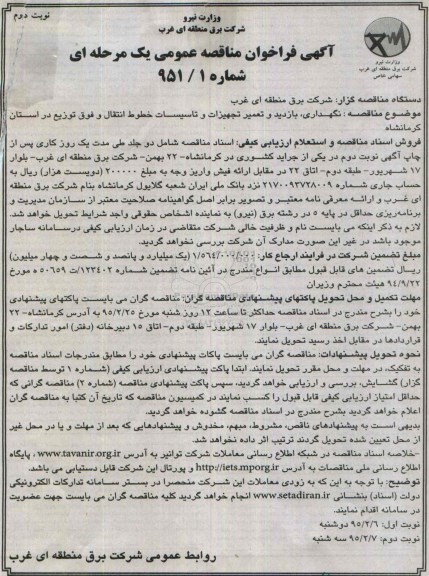 نوبت دوم
وزارت نیرو
شرکت برق منطقه ای غرب
وزارت نیرو
شرکت برق منطقه ای غرب
سهامی خاص
آگهی فراخوان مناقصه عمومی یک مرحله ای
شماره ۱ / ۹۵۱
دستگاه مناقصه گزار: شرکت برق منطقه ای غرب
موضوع مناقصه : نگهداری، بازدید و تعمیر تجهیزات و تاسیسات خطوط انتقال و فوق توزیع در استان
کرمانشاه
فروش اسناد مناقصه و استعلام ارزیابی کیفی: اسناد مناقصه شامل دو جلد طی مدت یک روز کاری پس از
چاپ آگهی نوبت دوم در یکی از جراید کشوری در کرمانشاه- ۲۲ بهمن- شرکت برق منطقه ای غرب- بلوار
۱۷ شهریور- طبقه دوم- اتاق ۲۲ در مقابل ارائه فیش واریز وجه به مبلغ ۲۰۰۰۰۰ (دویست هزار) ریال به
حساب جاری شماره ۲۱۷۰۰۹۳۷۲۸۰۰۹ نزد بانک ملی ایران شعبه گلایول کرمانشاه بنام شرکت برق منطقه
ای غرب و ارائه معرفی نامه معتبر و تصویر برابر اصل گواهینامه صلاحیت معتبر از سازمان مدیریت و
برنامه‌ریزی حداقل در پایه ۵ در رشته برق (نیرو) به نماینده اشخاص حقوقی واجد شرایط تحویل خواهد شد.
لازم به ذکر اینکه می بایست نام و ظرفیت خالی شرکت متقاضی در زمان ارزیابی کیفی درسامانه ساجار
موجود باشد در غیر این صورت مدارک آن شرکت بررسی نخواهد گردید.
مبلغ تضمین شرکت در فرایند ارجاع کار: ۱/۵۶۴/۰۰۰/۰۰۰ (یک میلیارد و پانصد و شصت و چهار میلیون)
ریال تضمین های قابل قبول مطابق انواع مندرج در آئین نامه تضمین شماره ۱۲۳۴۰۲/ت ۵۰۶۵۹ ه مورخ
۹۴/۹/۲۲ هیئت محترم وزیران
مهلت تکمیل و محل تحویل پاکتهای پیشنهادی مناقصه گران: مناقصه گران می بایست پاکتهای پیشنهادی
خود را بشرح مندرج در اسناد مناقصه حداکثر تا ساعت ۱۲ روز شنبه مورخ ۹۵/۲/۲۵ به آدرس کرمانشاه- ۲۲
بهمن- شرکت برق منطقه ای غرب- بلوار ۱۷ شهریور- طبقه دوم- اتاق ۱۵ دبیرخانه (دفتر) امور تدارکات و
قراردادها در مقابل اخذ رسید تحویل نمایند.
نحوه تحویل پیشنهادات: مناقصه گران می بایست پاکات پیشنهادی خود را مطابق مندرجات اسناد مناقصه
به تفکیک، در مهلت و محل مقرر تحویل نمایند. ابتدا پاکت پیشنهادی ارزیابی کیفی (شماره ۱ توسط مناقصه
گزار) گشایش، بررسی و ارزیابی خواهد گردید، سپس پاکت پیشنهادی مناقصه (شماره ۲) مناقصه گرانی که
حداقل امتیاز ارزیابی کیفی قابل قبول را کسب نمایند در کمیسیون مناقصه که تاریخ آن کتبا به مناقصه گران
اعلام خواهد گردید بشرح مندرج در اسناد مناقصه گشوده خواهد گردید.
بدیهی است به پیشنهادهای ناقص، مشروط، مبهم، مخدوش و پیشنهادهایی که بعد از مهلت و یا در محل غیر
از محل تعیین شده تحویل گردند ترتیب اثر داده نخواهد شد.
-خلاصه اسناد مناقصه در شبکه اطلاع رسانی معاملات شرکت توانیر به آدرس www.tavanir.org.ir ، پایگاه
اطلاع رسانی ملی مناقصات به آدرس http://iets.mporg.ir و پورتال این شرکت قابل دستیابی می باشد.
توضیح: با توجه به این که به زودی معاملات این شرکت منحصرا در بستر سامانه تدارکات الکترونیکی
دولت (اسناد) بنشانی www.setadiran.ir انجام خواهد گردید کلیه مناقصه گران می بایست جهت عضویت
در سامانه اقدام نمایند.
نوبت اول: ۹۵/۲/۶ دوشنبه
نوبت دوم: ۹۵/۲/۷ سه شنبه
روابط عمومی شرکت برق منطقه ای غرب